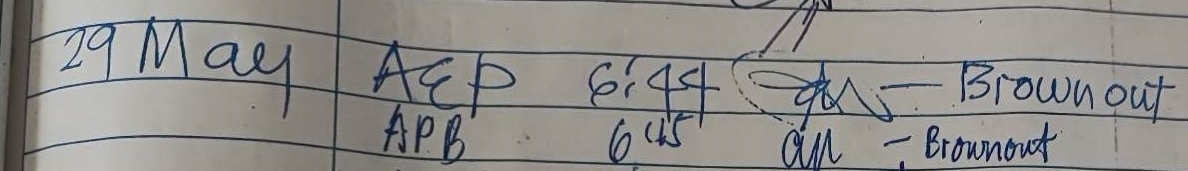 29 May AEP 6:44 am — Brownout
APB 6:45 am - Brownout